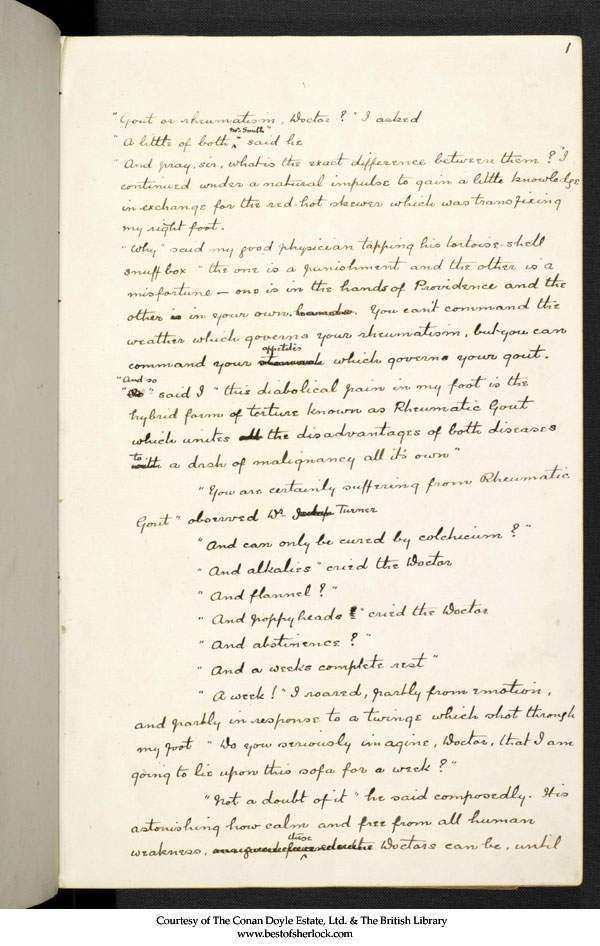 1
"Gout or rheumatism, Doctor?" I asked
Mr. Smith"
"A little of both " said he
"And pray, sir, what is the exact difference between them?" I
continued under a natural impulse to gain a little knowledge
in exchange for the red-hot skewer which was transfixing
my right foot.
"Why" said my good physician tapping his tortoise-shell
snuff box "the one is a punishment and the other is a
misfortune — one is in the hands of Providence and the
other is in your own. hands. You can't command the
weather which governs your rheumatism, but you can
appetites
command your stomach which governs your gout.
"And so
"So" said I "this diabolical pain in my foot is the
hybrid form of torture known as Rheumatic Gout
which unites all the disadvantages of both diseases
to
with a dash of malignancy all it's own"
"You are certainly suffering from Rheumatic
Gout" observed Dr. Turner
"And can only be cured by colchicum?"
"And alkalies" cried the Doctor
"And flannel?"
"And poppyheads" cried the Doctor
"And abstinence?"
"And a weeks complete rest"
"A week!" I roared, partly from emotion,
and partly in response to a twinge which shot through
my foot "Do you seriously imagine, Doctor, that I am
going to lie upon this sofa for a week?"
"Not a doubt of it" he said composedly. His
astonishing how calm and free from all human
these
weakness, Doctors can be, until
Courtesy of The Conan Doyle Estate, Ltd. & The British Library
www.bestofsherlock.com